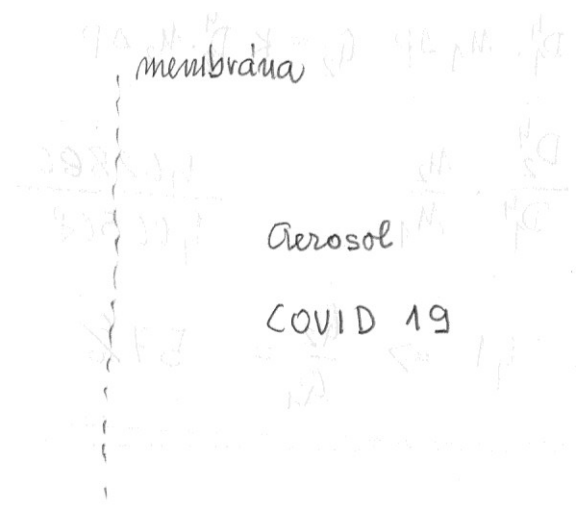 membrána
Aerosol
COVID 19